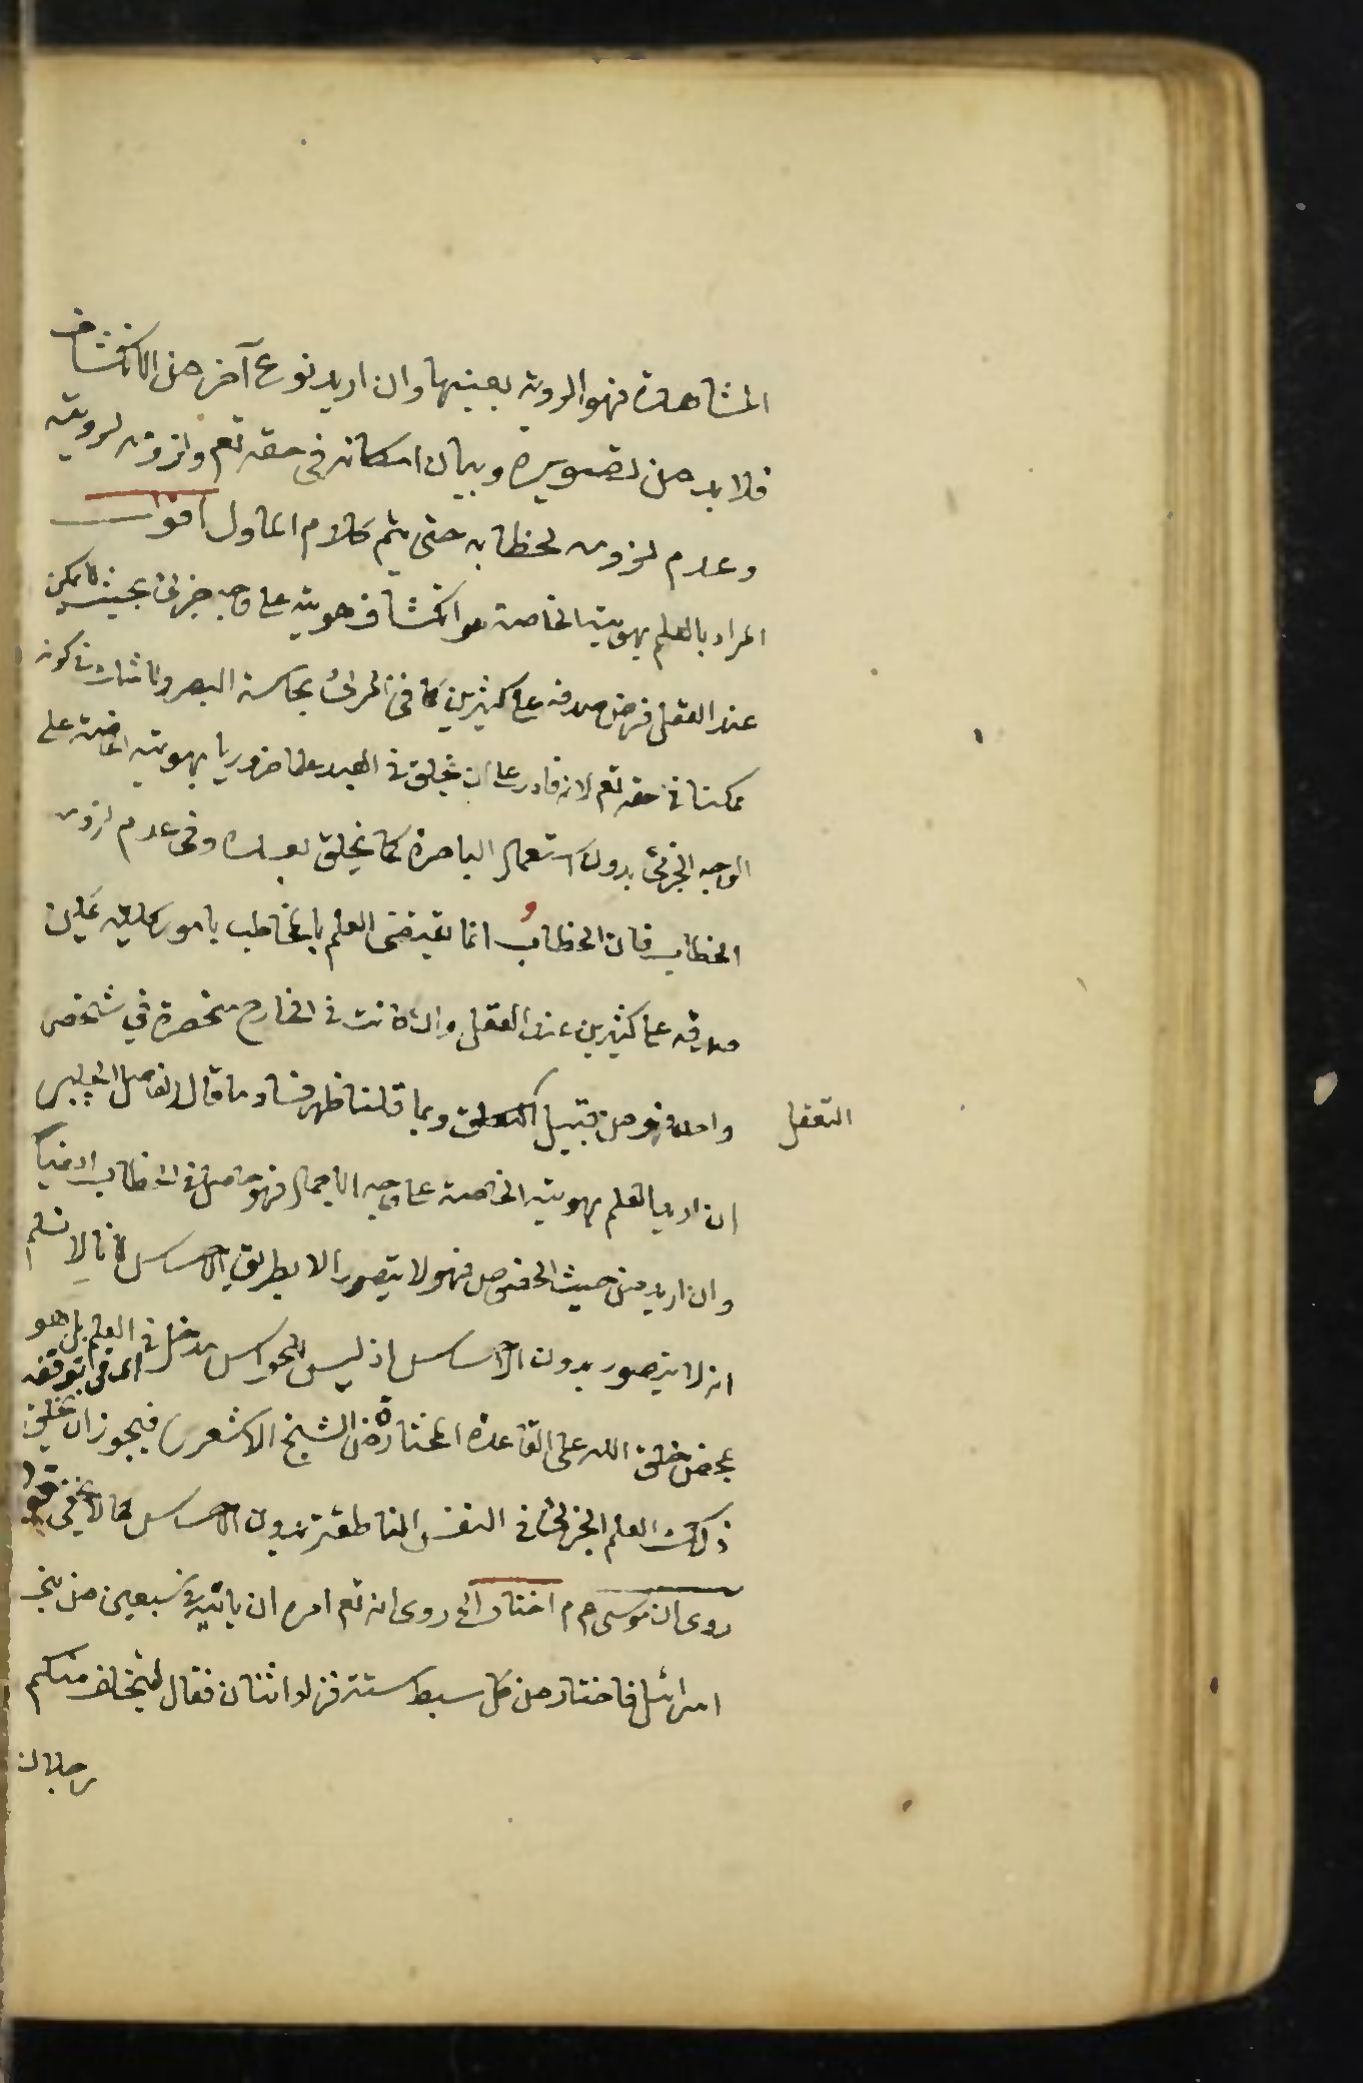 المشاهدة فهو الرؤية بعينها وان اريد نوع آخر من الانكشاف
فلا بد من تصويره وبيان امكانه في حقه تعم ولزومه لرويته
وعدم لزومه لخطابه حتى يتم كلام الماول اقول
المراد بالعلم بهويته الخاصة هو انكشاف هويته على وجه جزئى بحيث لا يمكن
عند العقل فرض صدقه على كثيرين كما في المرئى بحاسة البصر ولا شك في كونه
ممكنا في حقه تعم لانه قادر على ان يخلق في العبد علما ضروريا بهويته الخاصة على
الوجه الجزئى بدون استعمال الباصرة كما يخلق بعده وفي عدم لزومه
الخطاب فان الخطاب انما يقتضى العلم بالمخاطب بامور كلية يمكن
صدقه على كثيرين عند العقل وان كانت في الخارج منحصرة في شخص
واحد فهو من قبيل التعلق وبما قلنا ظهر فساد ما قال الفاضل الچلبى
التعقل
ان اريد بالعلم بهويته الخاصة على وجه الاجمال فهو حاصل في الخطاب ايضا
وان اريد من حيث الخصوص فهو لا يتصور الا بطريق الاحساس لانا لا نسلم
انه لا يتصور بدون الاحساس اذ ليس للحواس مدخل في العلم بل هو
بمحض خلق الله على القاعدة المختارة من الشيخ الاشعرى فيجوز ان يخلق
ذلك العلم الجزئى في النفس الناطقة بدون الاحساس كما لا يخفى قوله
روى ان موسى عم اختار الى روى انه تعم امره ان ياتيه في سبعين من بنى
اسرائيل فاختار من كل سبط ستة فزاد اثنان فقال ليتخلف منكم
رجلان